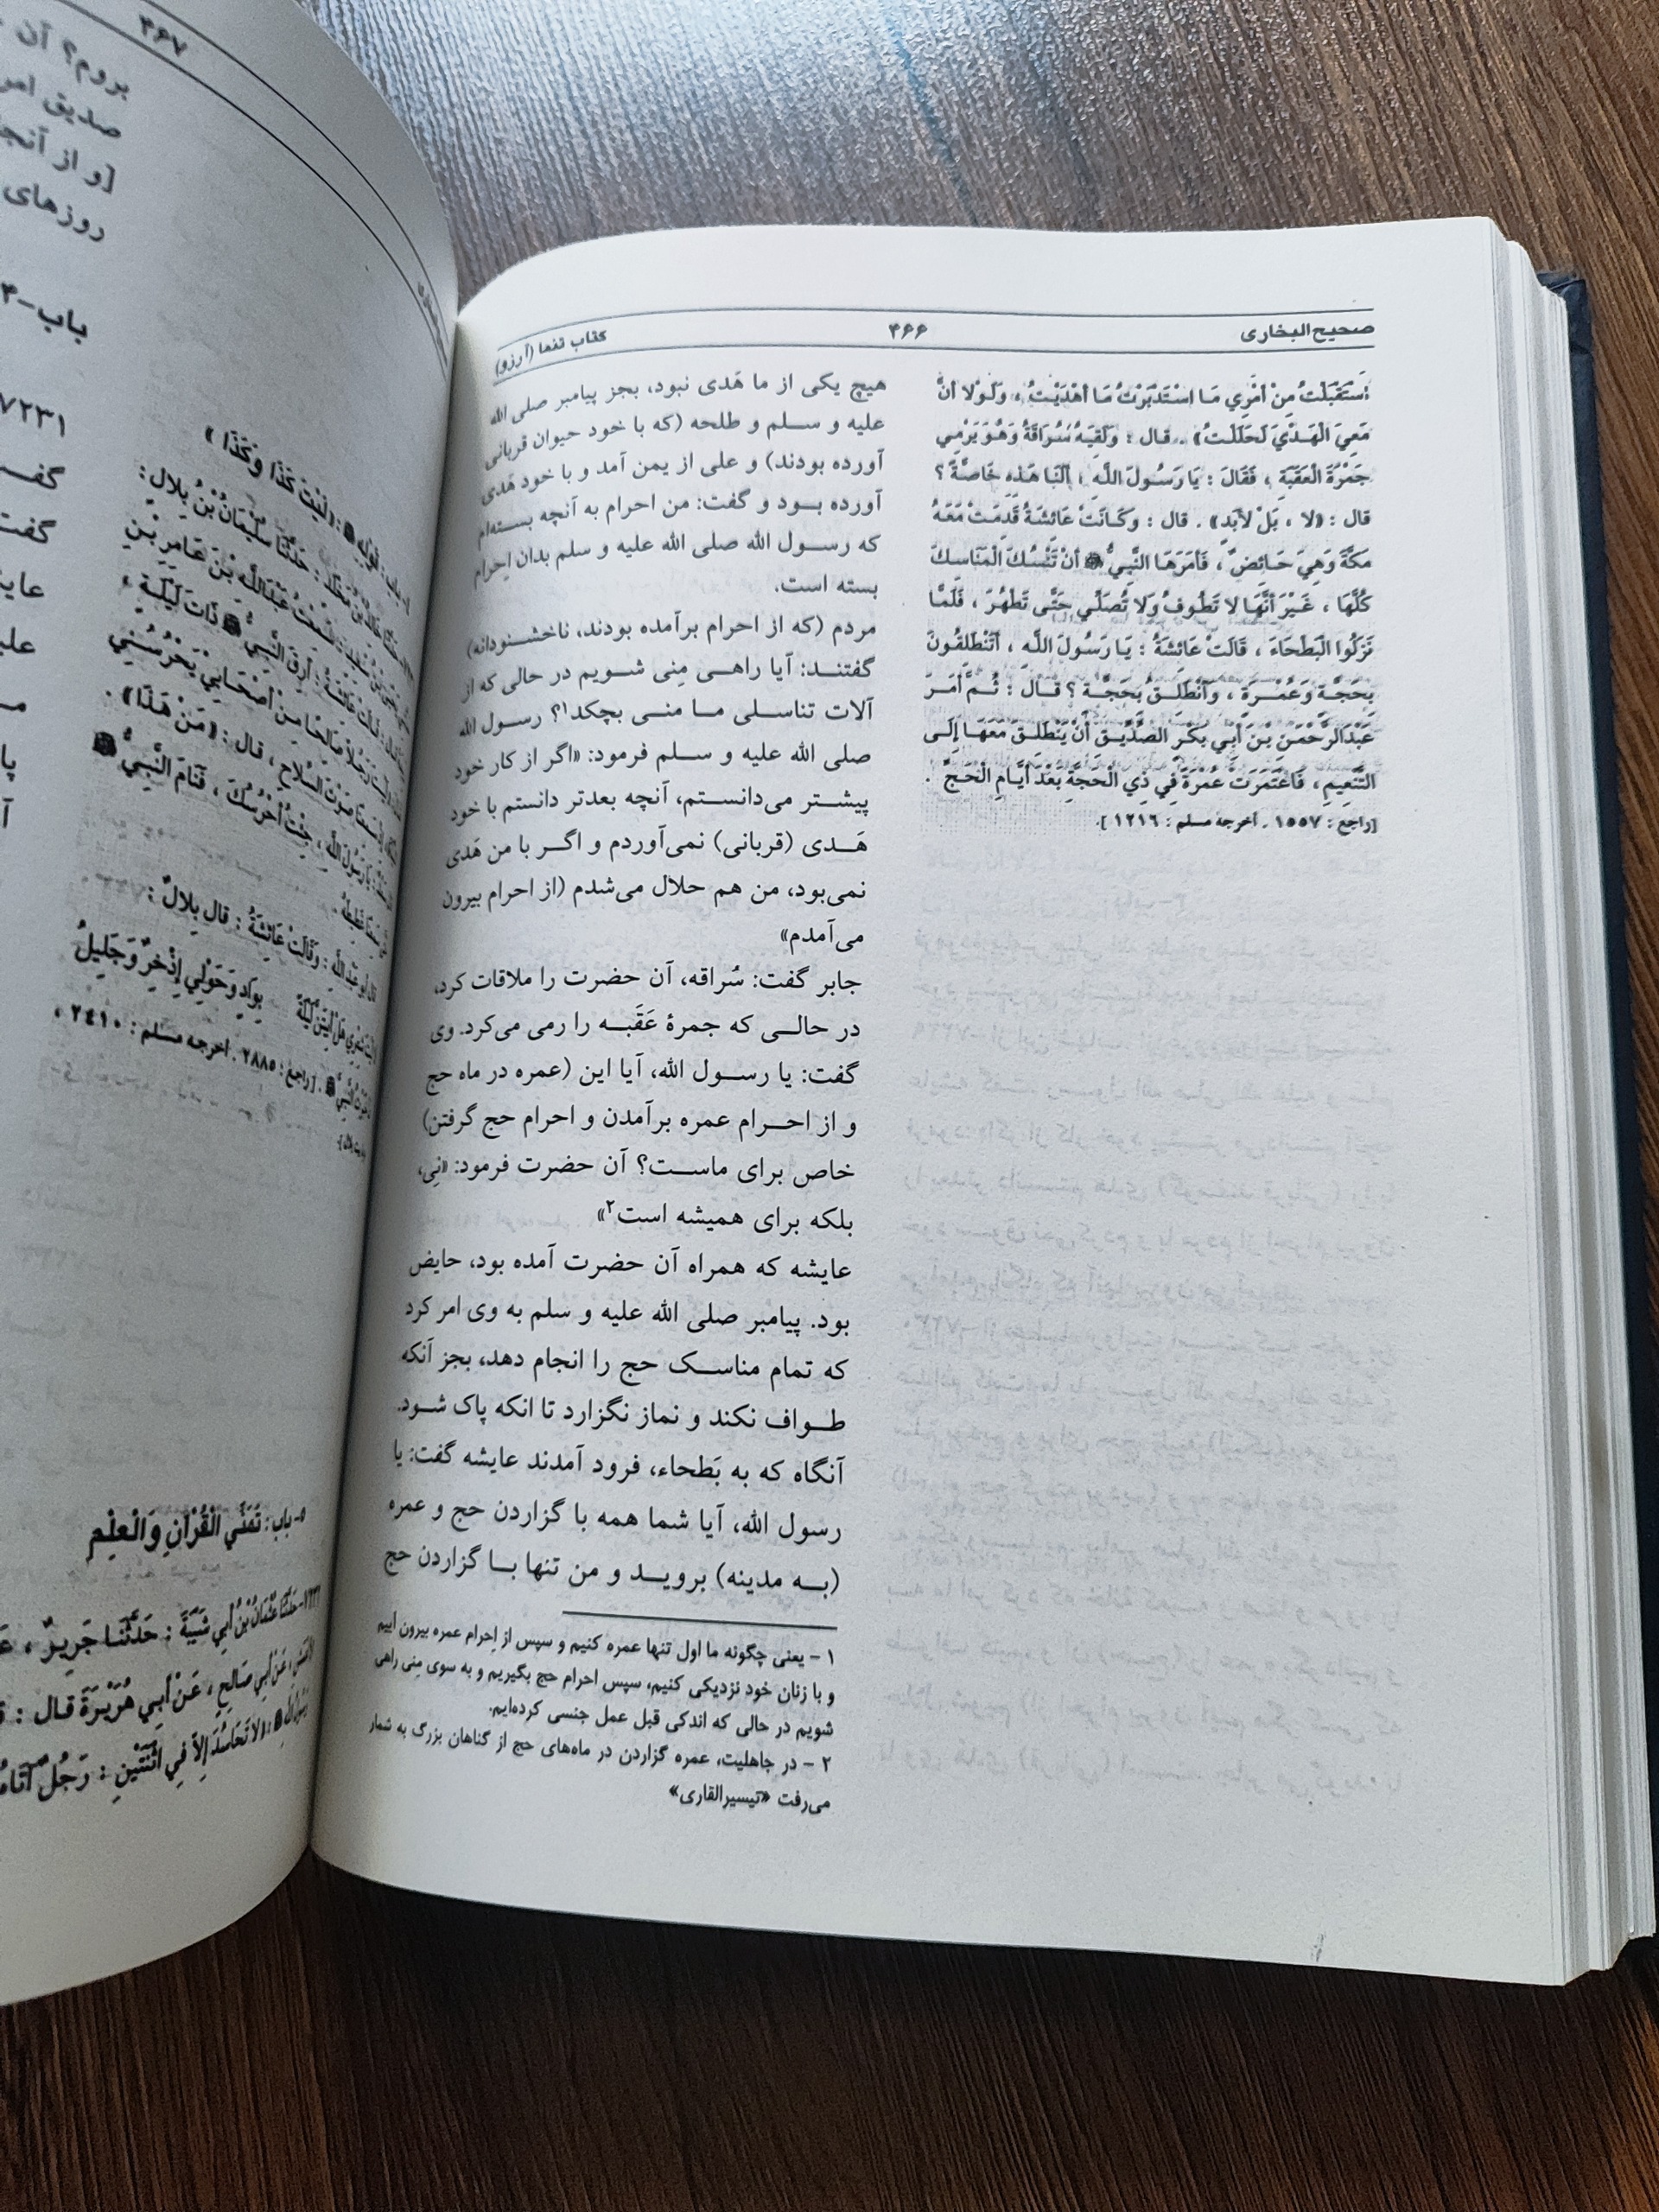 صحیح‌البخاری
۴۶۶
کتاب تنما (آرزو)
اسْتَقْبَلْتُ مِنْ أمْرِي مَا اسْتَدْبَرْتُ مَا أهْدَيْتُ ، وَلَوْلا أنَّ
مَعِيَ الْهَدْيَ لَحَلَلْتُ» . قال : وَلَقِيَهُ سُرَاقَةُ وَهُوَ يَرْمِي
جَمْرَةَ الْعَقَبَةِ ، فَقَالَ : يَا رَسُولَ اللَّهِ ، ألَنَا هَذِهِ خَاصَّةً ؟
قال : «لا ، بَلْ لأبَدٍ» . قال : وَكَانَتْ عَائِشَةُ قَدِمَتْ مَعَهُ
مَكَّةَ وَهِيَ حَائِضٌ ، فَأمَرَهَا النَّبِيُّ ﷺ أنْ تَنْسُكَ الْمَنَاسِكَ
كُلَّهَا ، غَيْرَ أنَّهَا لا تَطُوفُ وَلا تُصَلِّي حَتَّى تَطْهُرَ ، فَلَمَّا
نَزَلُوا الْبَطْحَاءَ ، قَالَتْ عَائِشَةُ : يَا رَسُولَ اللَّهِ ، أتَنْطَلِقُونَ
بِحَجَّةٍ وَعُمْرَةٍ ، وَأنْطَلِقُ بِحَجَّةٍ ؟ قال : ثُمَّ أمَرَ
عَبْدَالرَّحْمَنِ بْنَ أبِي بَكْرٍ الصِّدِّيقِ أنْ يَنْطَلِقَ مَعَهَا إلَى
التَّنْعِيمِ ، فَاعْتَمَرَتْ عُمْرَةً فِي ذِي الْحَجَّةِ بَعْدَ أيَّامِ الْحَجِّ .
[راجع : ١٥٥٧ . أخرجه مسلم : ١٢١٦ ].
هیچ یکی از ما هَدی نبود، بجز پیامبر صلی الله
علیه و سلم و طلحه (که با خود حیوان قربانی
آورده بودند) و علی از یمن آمد و با خود هَدی
آورده بود و گفت: من احرام به آنچه بسته‌ام
که رسول الله صلی الله علیه و سلم بدان اِحرام
بسته است.
مردم (که از احرام برآمده بودند، ناخشنودانه)
گفتند: آیا راهی مِنی شویم در حالی که از
آلات تناسلی ما منی بچکد۱؟ رسول الله
صلی الله علیه و سلم فرمود: «اگر از کار خود
پیشتر می‌دانستم، آنچه بعدتر دانستم با خود
هَدی (قربانی) نمی‌آوردم و اگر با من هَدی
نمی‌بود، من هم حلال می‌شدم (از احرام بیرون
می‌آمدم»
جابر گفت: سُراقه، آن حضرت را ملاقات کرد،
در حالی که جمرهٔ عَقَبه را رمی می‌کرد. وی
گفت: یا رسول الله، آیا این (عمره در ماه حج
و از احرام عمره برآمدن و احرام حج گرفتن)
خاص برای ماست؟ آن حضرت فرمود: «نِی،
بلکه برای همیشه است۲»
عایشه که همراه آن حضرت آمده بود، حایض
بود. پیامبر صلی الله علیه و سلم به وی امر کرد
که تمام مناسک حج را انجام دهد، بجز آنکه
طواف نکند و نماز نگزارد تا انکه پاک شود.
آنگاه که به بَطحاء، فرود آمدند عایشه گفت: یا
رسول الله، آیا شما همه با گزاردن حج و عمره
(به مدینه) بروید و من تنها با گزاردن حج
۱ – یعنی چگونه ما اول تنها عمره کنیم و سپس از اِحرام عمره بیرون اییم
و با زنان خود نزدیکی کنیم، سپس احرام حج بگیریم و به سوی مِنی راهی
شویم در حالی که اندکی قبل عمل جنسی کرده‌ایم.
۲ – در جاهلیت، عمره گزاردن در ماه‌های حج از گناهان بزرگ به شمار
می‌رفت «تیسیرالقاری»
۴۶۷
بروم؟ آن
صدیق امر
[و از آنجا
روزهای
باب–۴
۷۲۳۱
گفت
علی
باب : قَوْلِهِ ﷺ : «لَيْتَ كَذَا وَكَذَا »
حَدَّثَنَا خَالِدُ بْنُ مَخْلَدٍ : حَدَّثَنَا سُلَيْمَانُ بْنُ بِلالٍ :
سَمِعْتُ عَبْدَاللَّهِ بْنَ عَامِرِ بْنِ
قَالَتْ عَائِشَةُ : أرِقَ النَّبِيُّ ﷺ ذَاتَ لَيْلَةٍ ،
رَجُلاً صَالِحًا مِنْ أصْحَابِي يَحْرُسُنِي
سَمِعْنَا صَوْتَ السِّلاحِ ، قال : «مَنْ هَذَا» .
يَا رَسُولَ اللَّهِ ، جِئْتُ أحْرُسُكَ ، فَنَامَ النَّبِيُّ ﷺ
سَمِعْنَا غَطِيطَهُ .
قال أبو عَبْدِاللَّهِ : وَقَالَتْ عَائِشَةُ : قال بِلالٌ :
شِعْرِي هَلْ أبِيتَنَّ لَيْلَةً بِوَادٍ وَحَوْلِي إذْخِرٌ وَجَلِيلُ
النَّبِيَّ ﷺ . [راجع : ٢٨٨٥ . أخرجه مسلم : ٢٤١٠ ،
٥– باب : تَمَنِّي الْقُرْآنِ وَالْعِلْمِ
حَدَّثَنَا عُثْمَانُ بْنُ أبِي شَيْبَةَ : حَدَّثَنَا جَرِيرٌ ،
عَنْ أبِي صَالِحٍ ، عَنْ أبِي هُرَيْرَةَ قال :
«لا تَحَاسُدَ إلاَّ فِي اثْنَتَيْنِ : رَجُلٌ